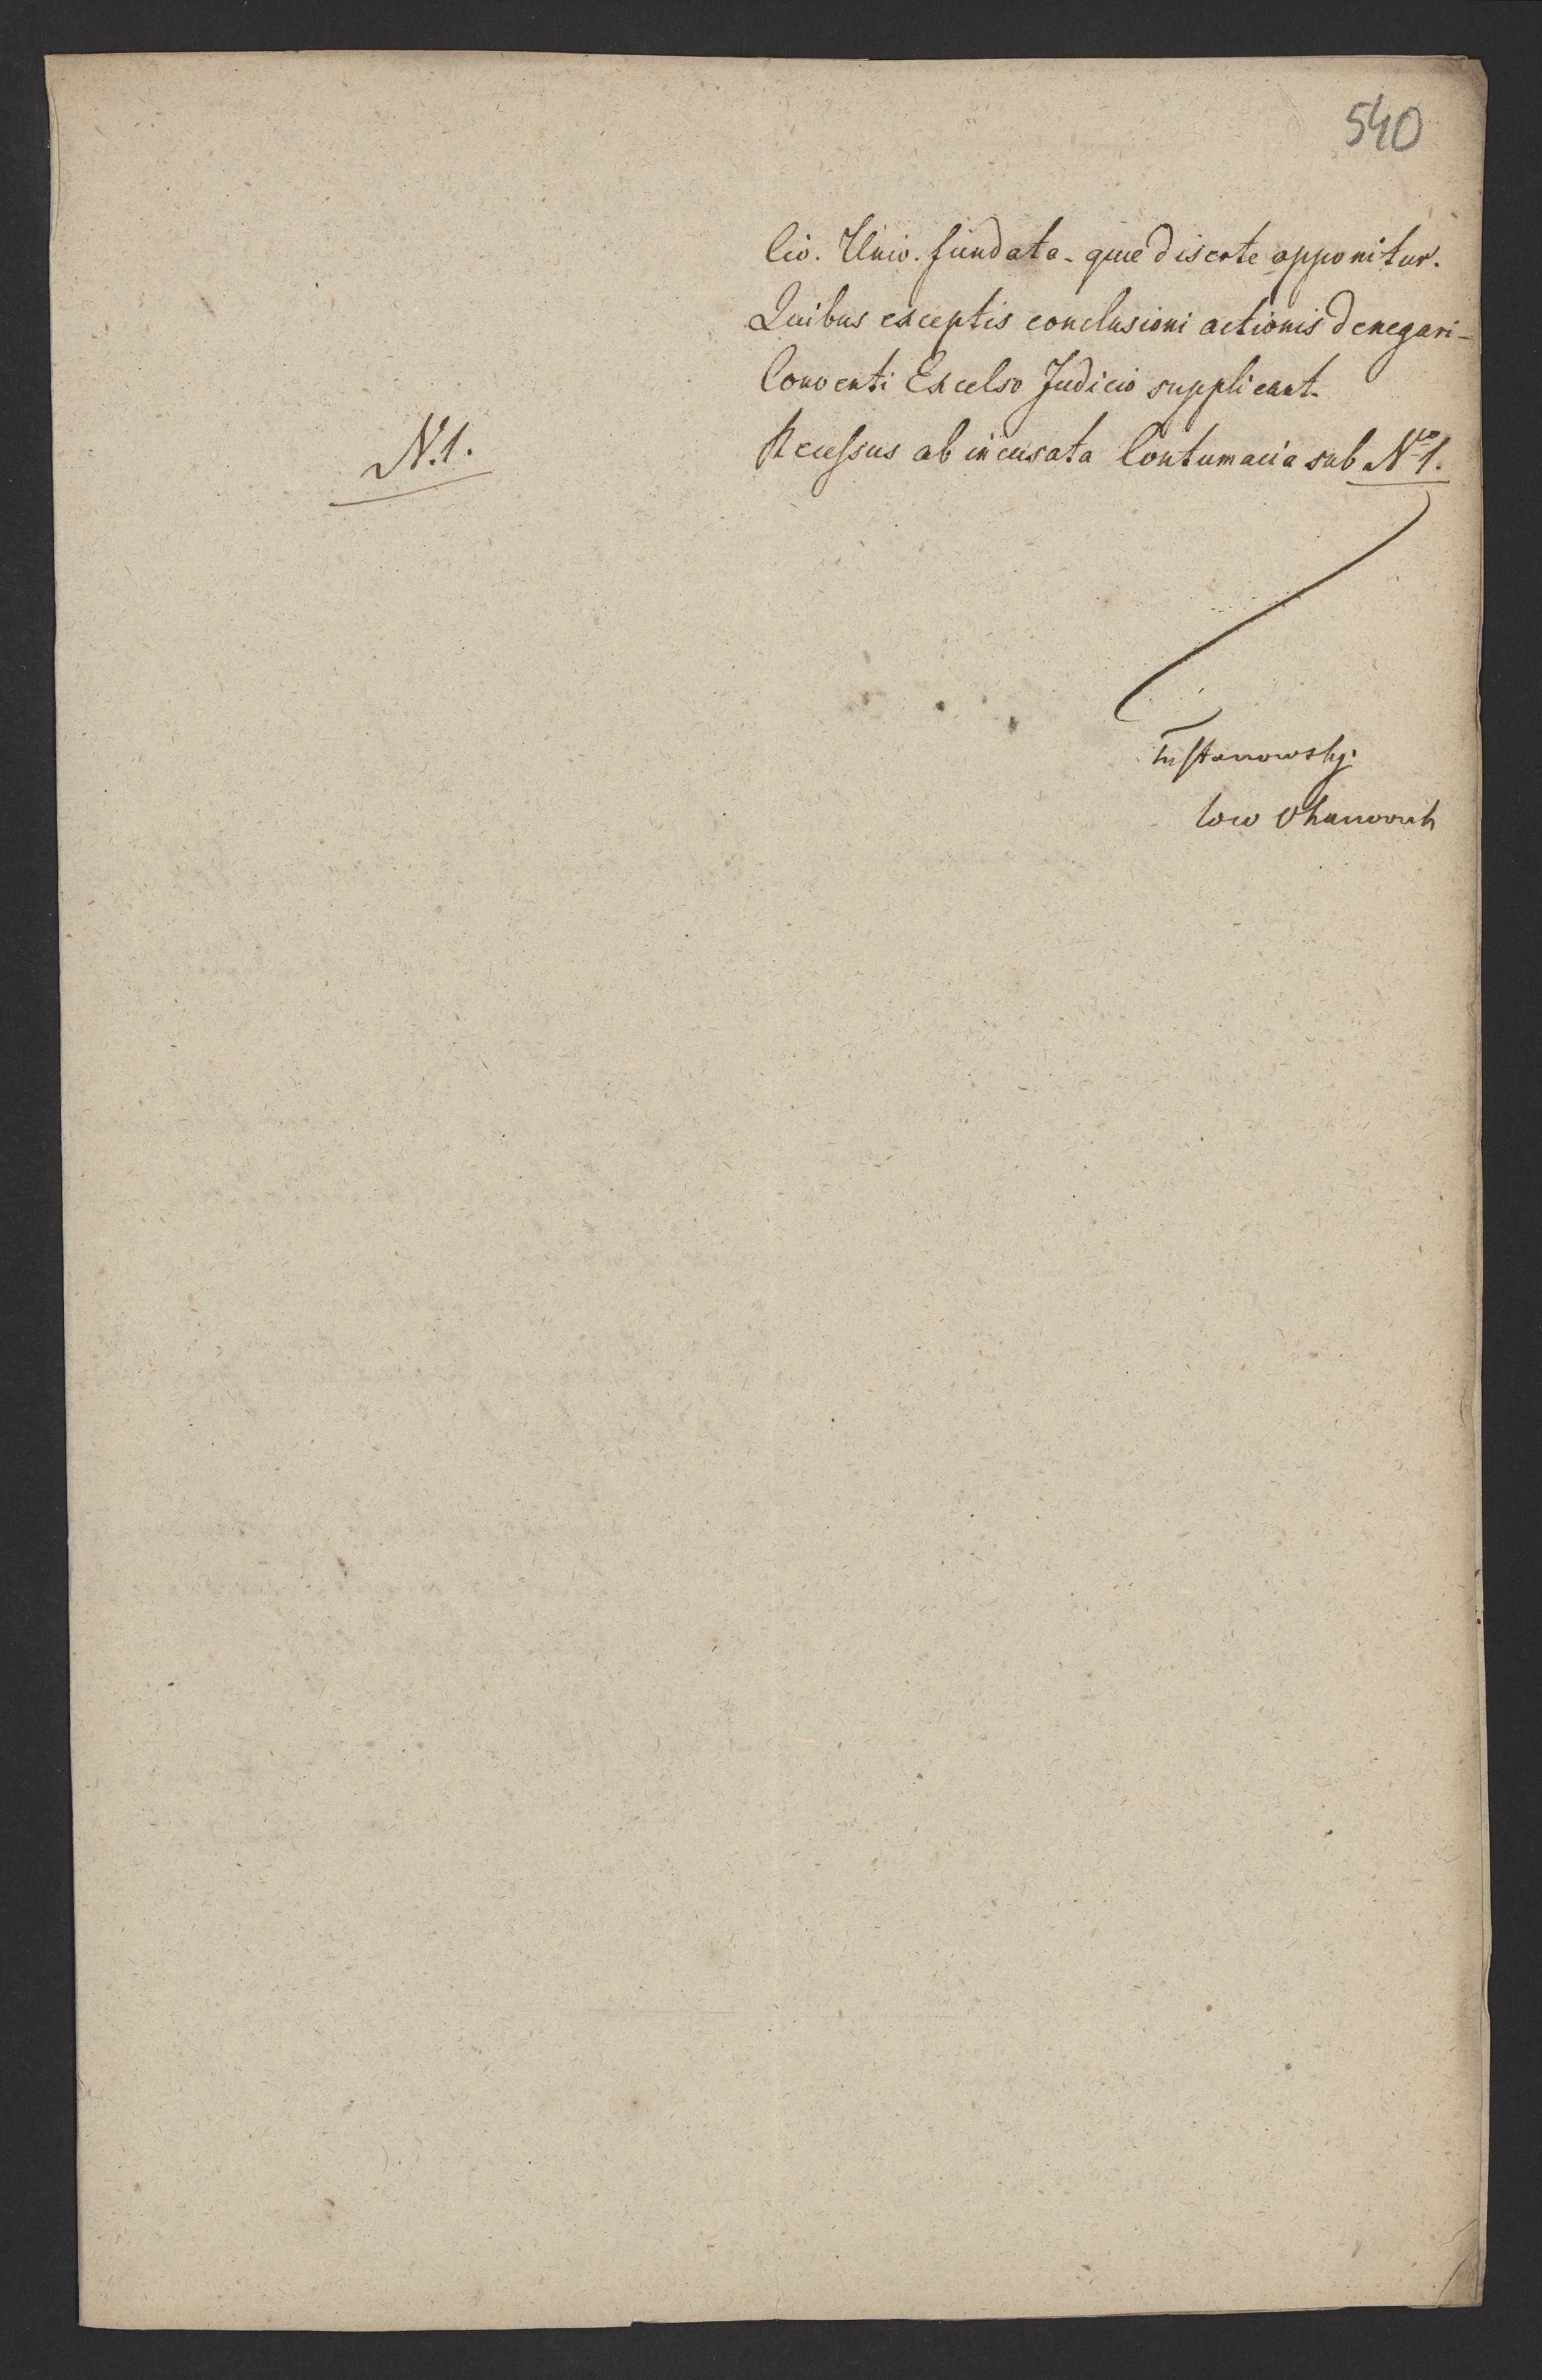 540
Civ. Univ. fundata - quæ diserte opponitur.
Quibus exceptis conclusioni actionis denegari -
Conventi Excelso Judicio supplicant.
N. 1.
Recessus ab incusata Contumacia sub Nro 1.
Tustanowsky
loco Ohanowich